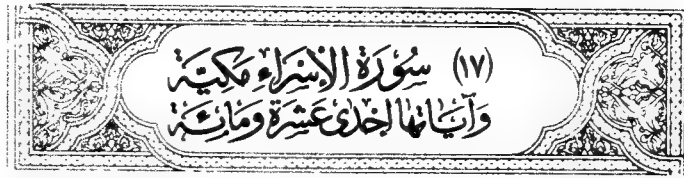 (١٧) سُوْرَةُ الْإِسْرَاءِ مَكِيَّة
وَآيَانُهَا إِحْدَى عَشْرَةَ وَمَائِة